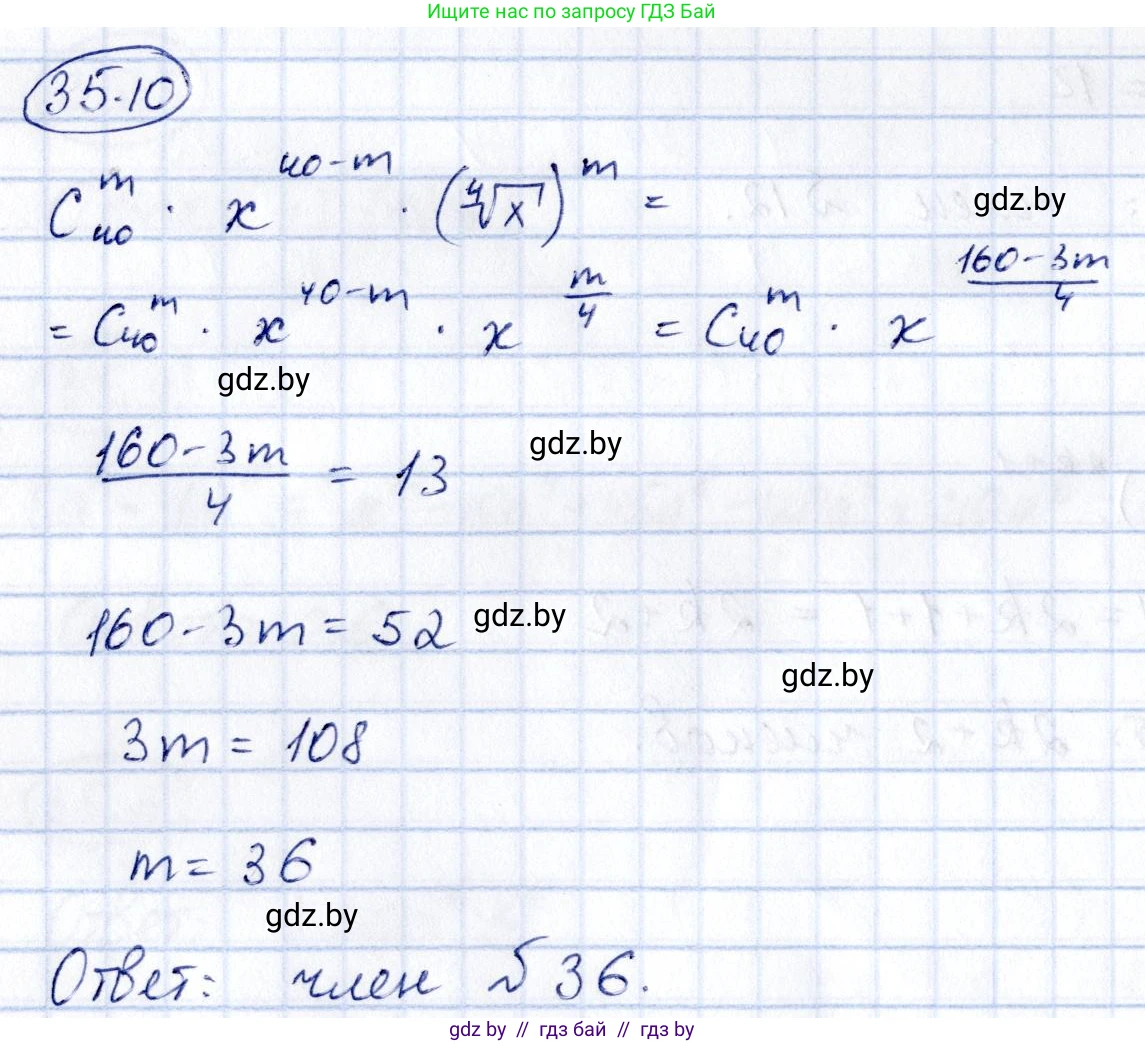 Ищите нас по запросу ГДЗ Бай
35.10
C₄₀ᵐ · x⁴⁰⁻ᵐ · (⁴√x)ᵐ =
gdz.by
= C₄₀ᵐ · x⁴⁰⁻ᵐ · x^(m/4) = C₄₀ᵐ · x^((160-3m)/4)
gdz.by
(160-3m)/4 = 13
gdz.by
160-3m = 52
gdz.by
gdz.by
3m = 108
m = 36
gdz.by
Ответ: член № 36.
gdz by // гдз бай // гдз by